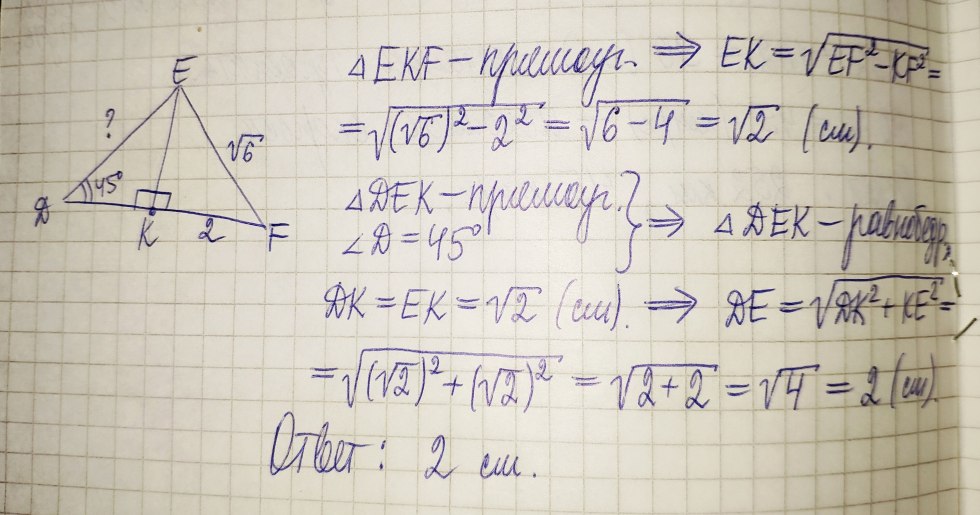 E
?
√6
45°
D
K
2
F
△EKF – прямоуг. ⟹ EK = √(EF² – KF²) =
= √((√6)² – 2²) = √(6 – 4) = √2 (см).
△DEK – прямоуг. } ⟹ △DEK – равнобедр.,
∠D = 45°
DK = EK = √2 (см). ⟹ DE = √(DK² + KE²) =
= √((√2)² + (√2)²) = √(2 + 2) = √4 = 2 (см).
Ответ: 2 см.